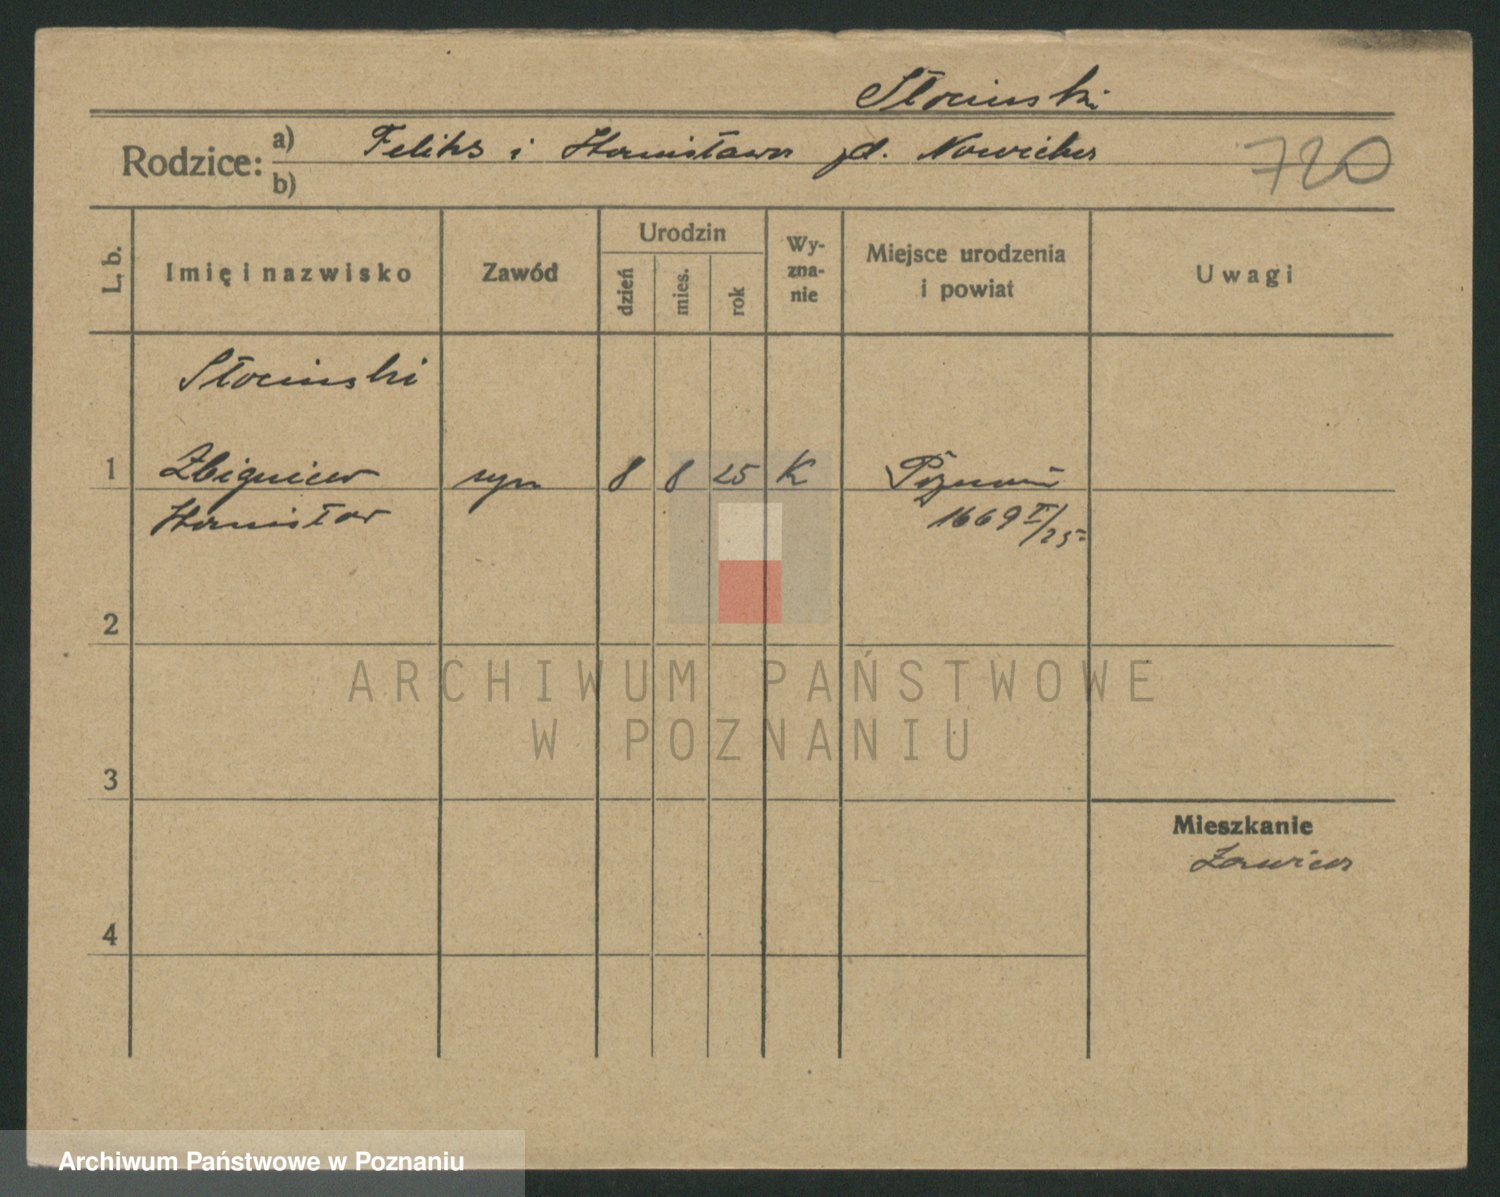 Słociński
Rodzice: a) Feliks i Stanisława zd. Nowicka
b)
720
L. b.
Imię i nazwisko
Zawód
Urodzin
dzień
mies.
rok
Wy-
zna-
nie
Miejsce urodzenia
i powiat
Uwagi
Słociński
1 Zbigniew syn 8 8 25 K Poznań
Stanisław 1669 /25
2
3
Mieszkanie
4
ARCHIWUM PAŃSTWOWE
W POZNANIU
Archiwum Państwowe w Poznaniu